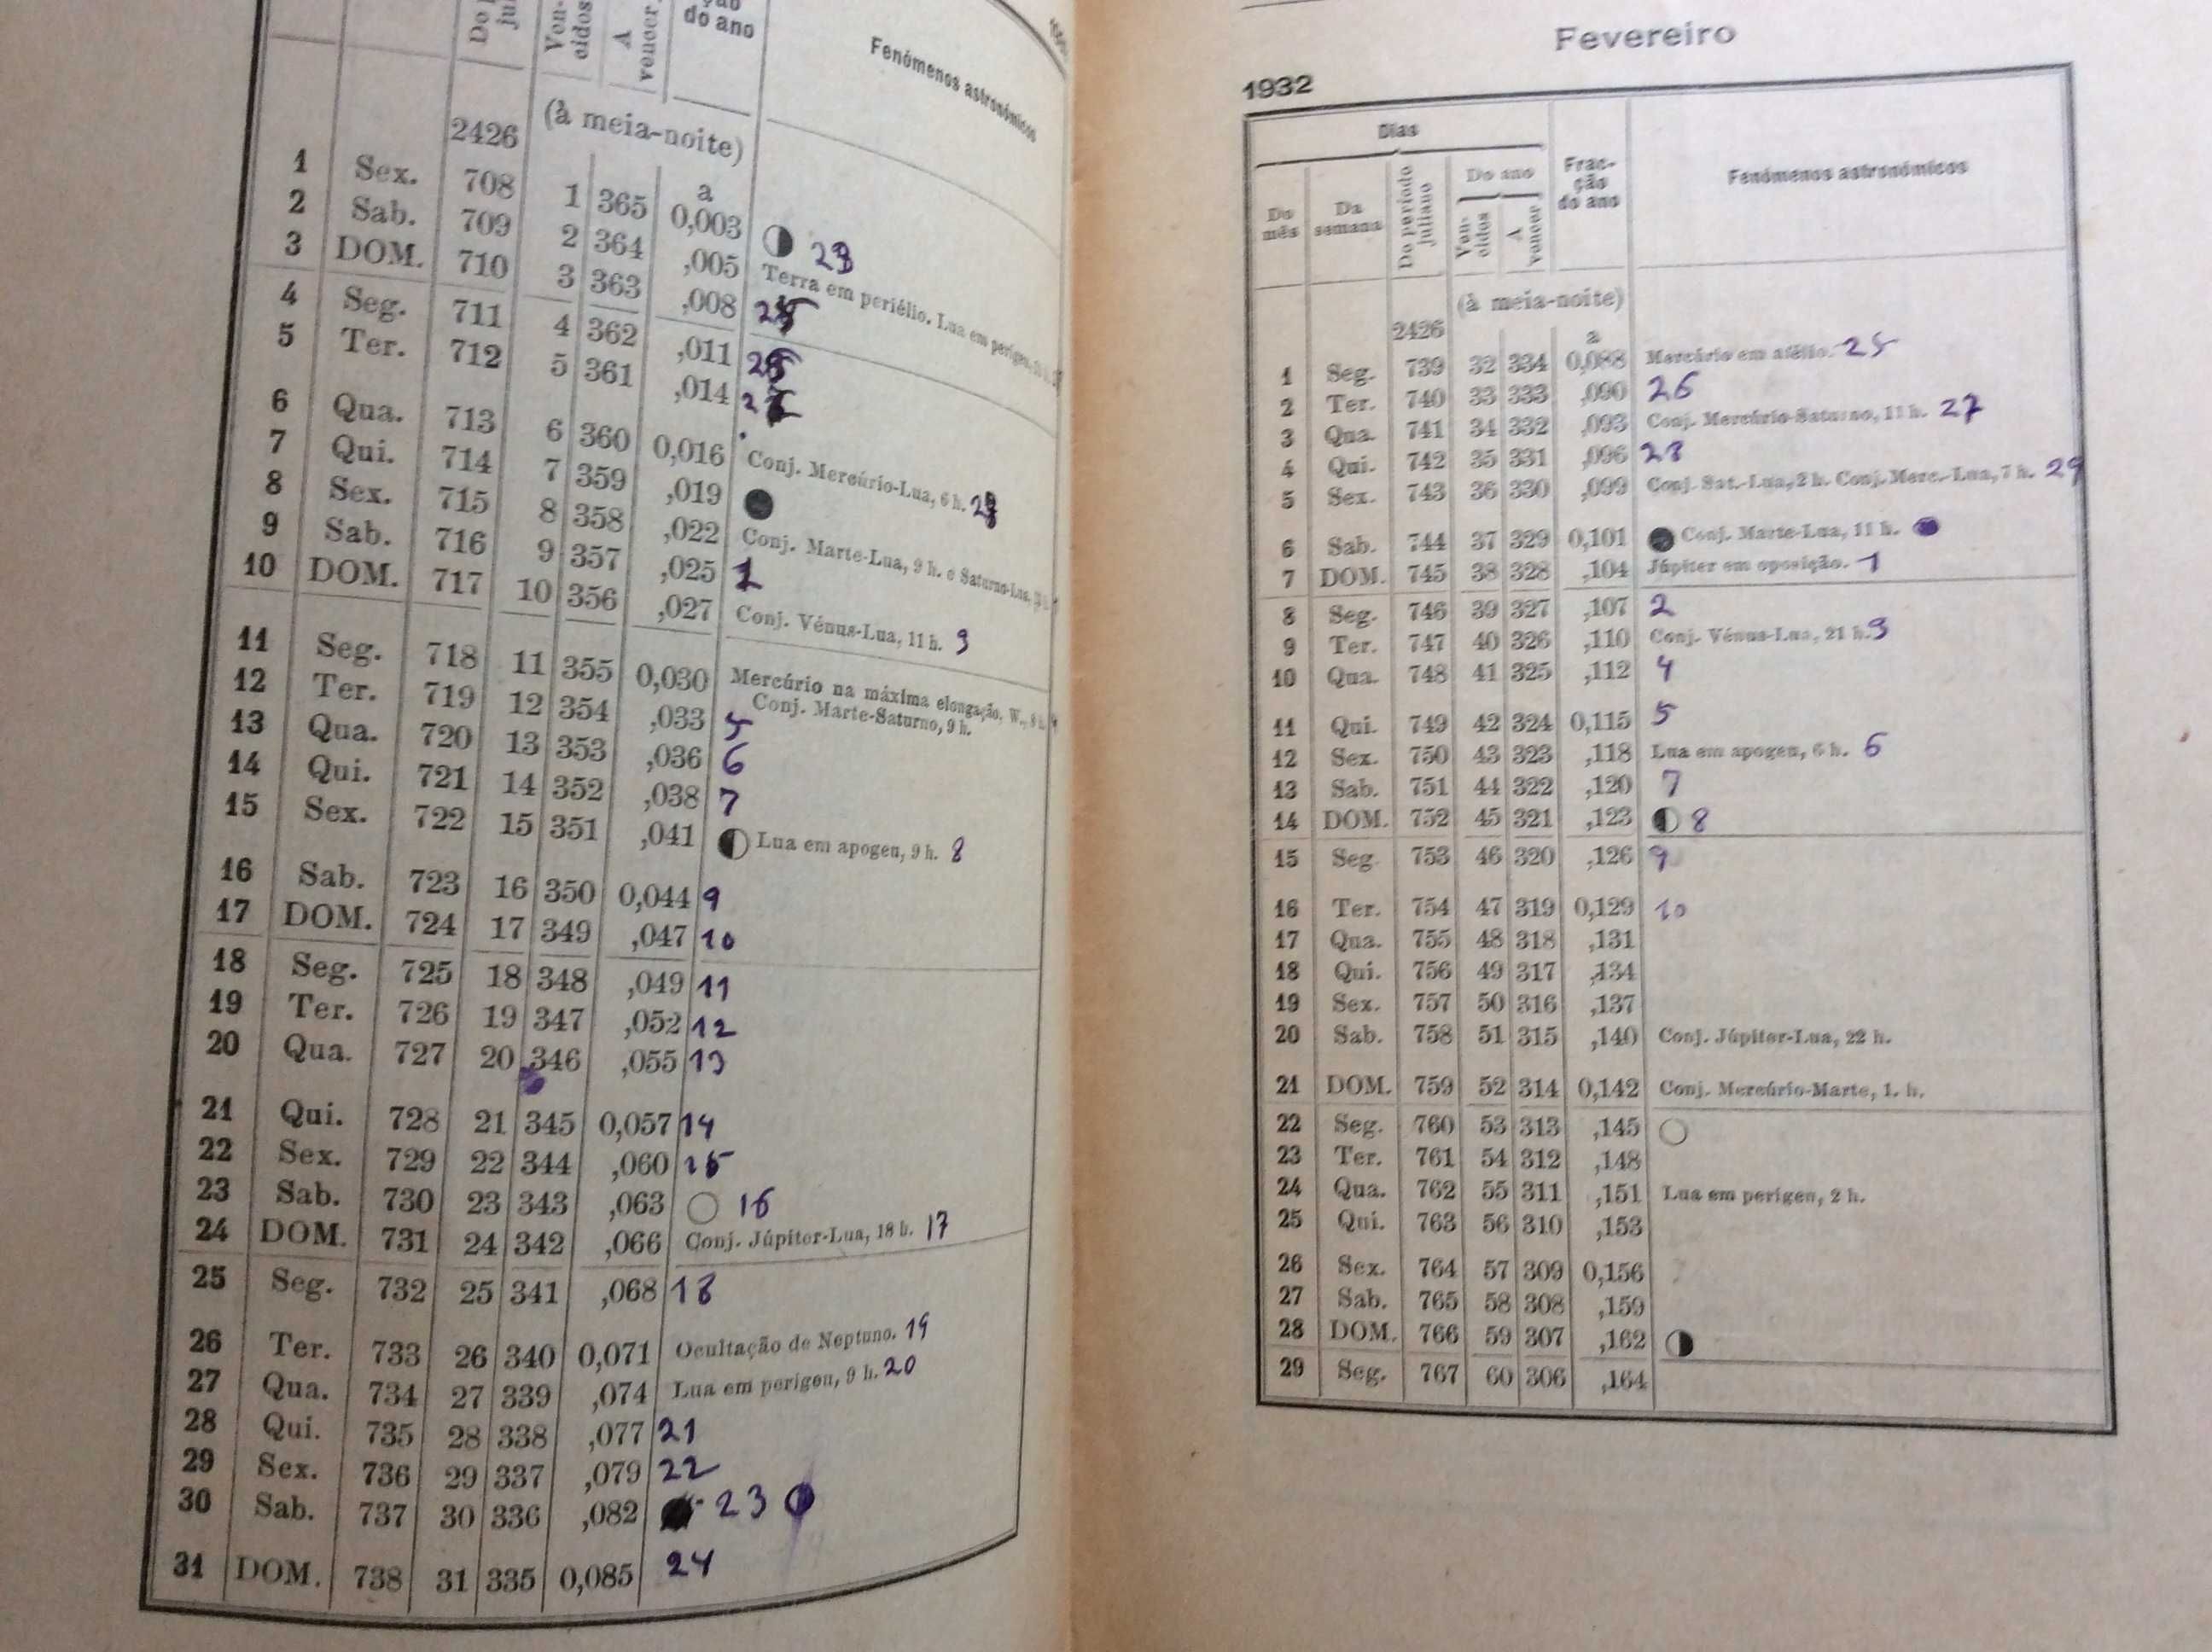 do ano
Fenómenos astronómicos
Ven-
cidos
A
vencer
2426 (à meia-noite)
a
1 Sex. 708 1 365 0,003 23
2 Sab. 709 2 364 ,005 Terra em periélio. Lua em perigeu,
3 DOM. 710 3 363 ,008
4 Seg. 711 4 362 ,011
5 Ter. 712 5 361 ,014
6 Qua. 713 6 360 0,016 Conj. Mercúrio-Lua, 6 h.
7 Qui. 714 7 359 ,019
8 Sex. 715 8 358 ,022 Conj. Marte-Lua, 9 h. e Saturno-Lua,
9 Sab. 716 9 357 ,025
10 DOM. 717 10 356 ,027 Conj. Vénus-Lua, 11 h. 3
11 Seg. 718 11 355 0,030 Mercúrio na máxima elongação, W.,
Conj. Marte-Saturno, 9 h.
12 Ter. 719 12 354 ,033 5
13 Qua. 720 13 353 ,036 6
14 Qui. 721 14 352 ,038 7
15 Sex. 722 15 351 ,041 Lua em apogeu, 9 h. 8
16 Sab. 723 16 350 0,044 9
17 DOM. 724 17 349 ,047 10
18 Seg. 725 18 348 ,049 11
19 Ter. 726 19 347 ,052 12
20 Qua. 727 20 346 ,055 13
21 Qui. 728 21 345 0,057 14
22 Sex. 729 22 344 ,060 15
23 Sab. 730 23 343 ,063 16
24 DOM. 731 24 342 ,066 Conj. Júpiter-Lua, 18 h. 17
25 Seg. 732 25 341 ,068 18
26 Ter. 733 26 340 0,071 Ocultação de Neptuno. 19
27 Qua. 734 27 339 ,074 Lua em perigeu, 9 h. 20
28 Qui. 735 28 338 ,077 21
29 Sex. 736 29 337 ,079 22
30 Sab. 737 30 336 ,082 23
31 DOM. 738 31 335 0,085 24
Fevereiro
1932
Dias
Do
mês
Da
semana
Do período
juliano
Do ano
Ven-
cidos
A
vencer
Frac-
ção
do ano
Fenómenos astronómicos
(à meia-noite)
2426 a
1 Seg. 739 32 334 0,088 Mercúrio em afélio. 25
2 Ter. 740 33 333 ,090 26
3 Qua. 741 34 332 ,093 Conj. Mercúrio-Saturno, 11 h. 27
4 Qui. 742 35 331 ,096 28
5 Sex. 743 36 330 ,099 Conj. Sat.-Lua, 2 h. Conj. Merc.-Lua, 7 h. 29
6 Sab. 744 37 329 0,101 Conj. Marte-Lua, 11 h.
7 DOM. 745 38 328 ,104 Júpiter em oposição. 1
8 Seg. 746 39 327 ,107 2
9 Ter. 747 40 326 ,110 Conj. Vénus-Lua, 21 h. 3
10 Qua. 748 41 325 ,112 4
11 Qui. 749 42 324 0,115 5
12 Sex. 750 43 323 ,118 Lua em apogeu, 6 h. 6
13 Sab. 751 44 322 ,120 7
14 DOM. 752 45 321 ,123 8
15 Seg 753 46 320 ,126 9
16 Ter. 754 47 319 0,129 10
17 Qua. 755 48 318 ,131
18 Qui. 756 49 317 ,134
19 Sex. 757 50 316 ,137
20 Sab. 758 51 315 ,140 Conj. Júpiter-Lua, 22 h.
21 DOM. 759 52 314 0,142 Conj. Mercúrio-Marte, 1. h.
22 Seg. 760 53 313 ,145
23 Ter. 761 54 312 ,148
24 Qua. 762 55 311 ,151 Lua em perigeu, 2 h.
25 Qui. 763 56 310 ,153
26 Sex. 764 57 309 0,156
27 Sab. 765 58 308 ,159
28 DOM. 766 59 307 ,162
29 Seg. 767 60 306 ,164